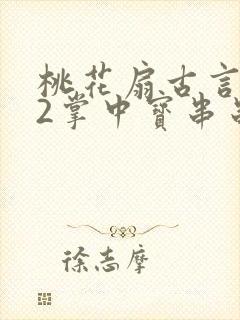 桃花扇古言
2掌中寶串
徐志摩